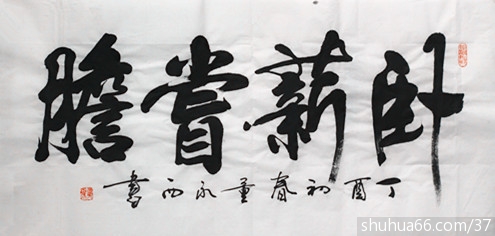 卧薪嘗膽
丁酉初春董永西書
shuhua66.com/37